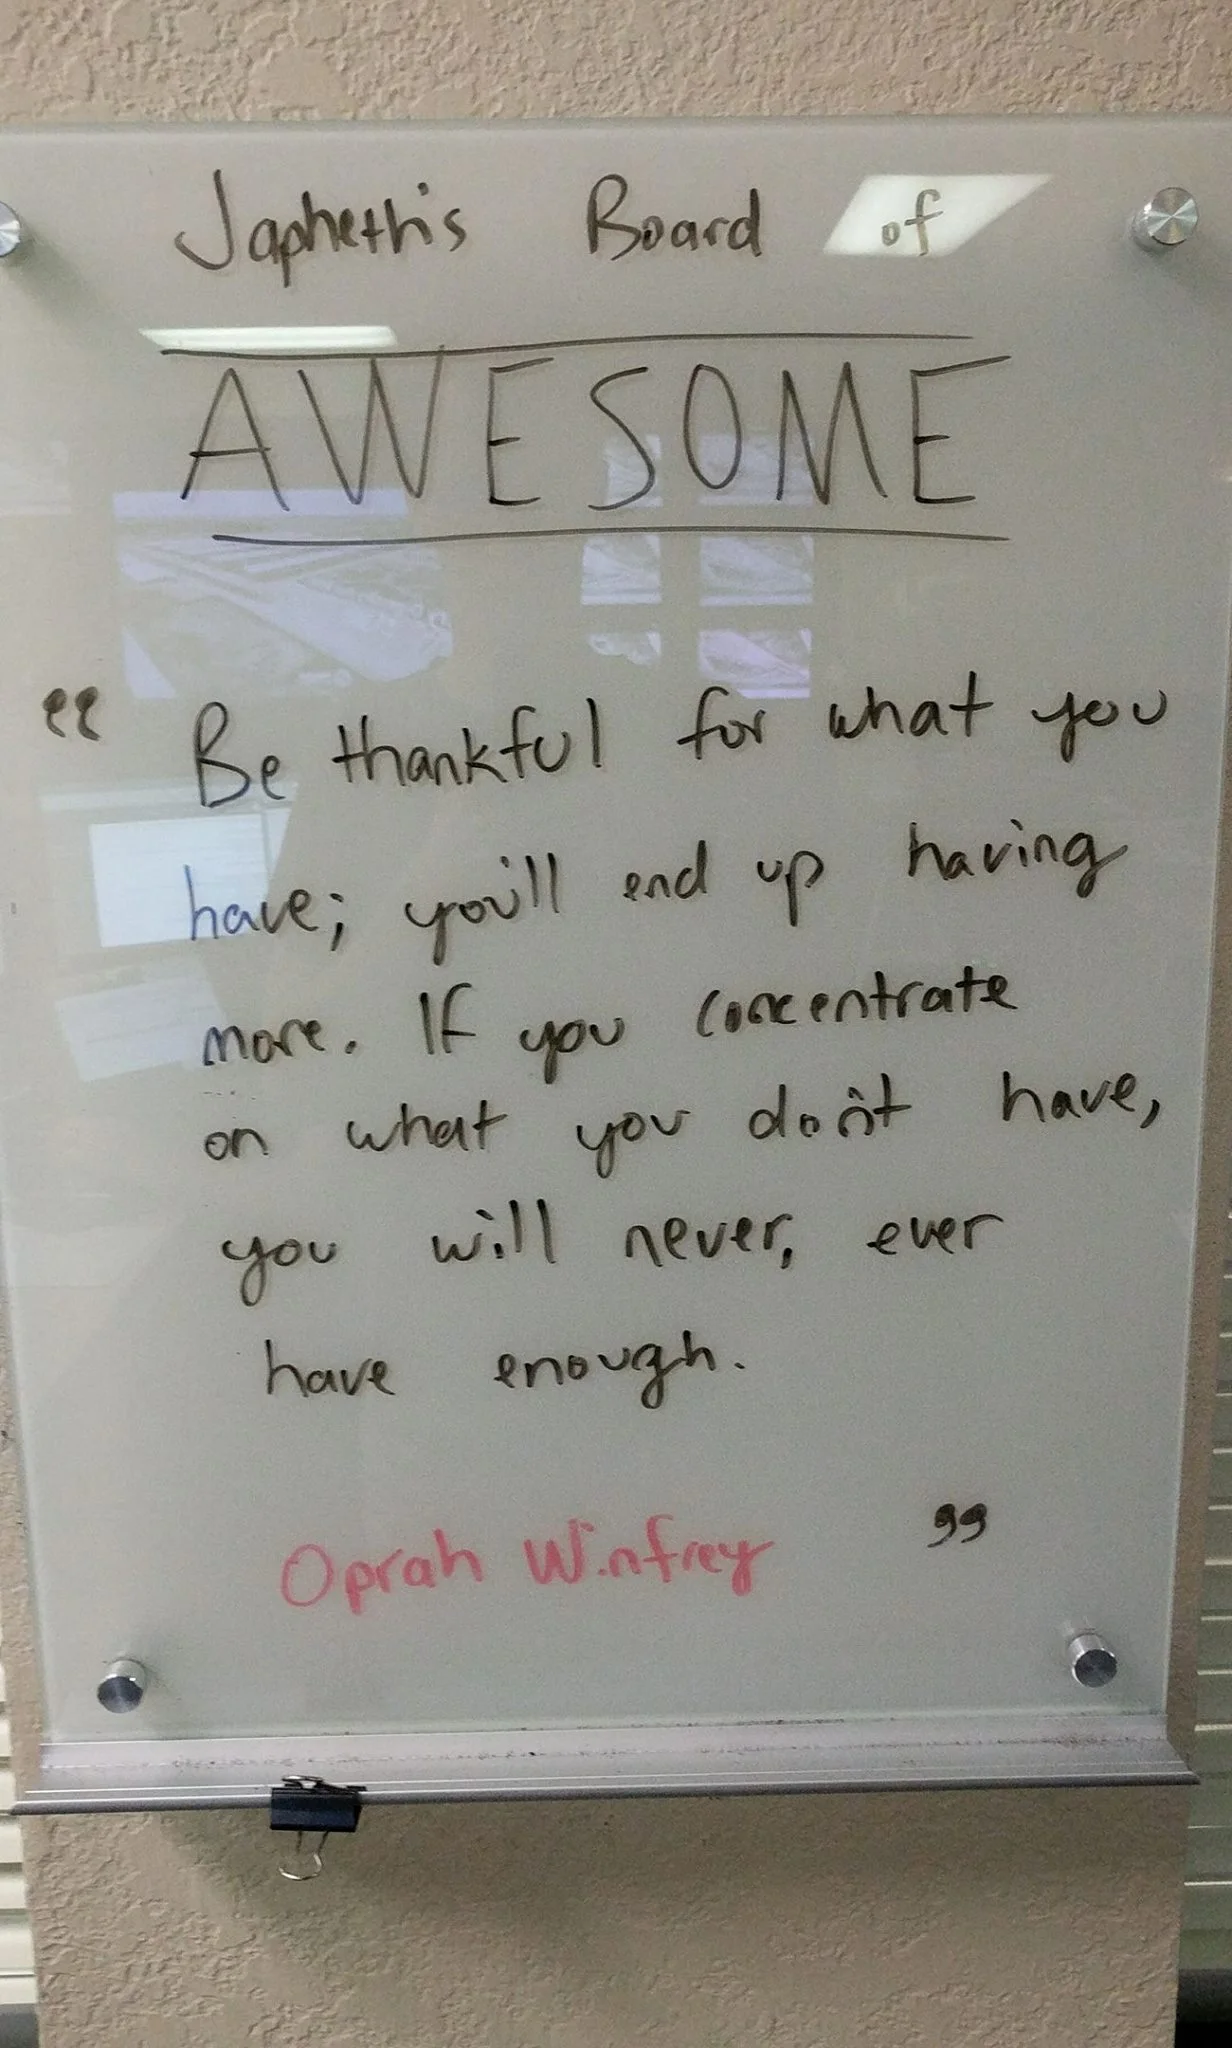 Japheth's Board of
AWESOME
“ Be thankful for what you
have; you'll end up having
more. If you concentrate
on what you don't have,
you will never, ever
have enough.
Oprah Winfrey ”